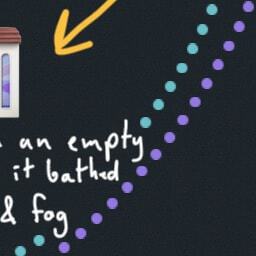 an empty
it bathed
& fog